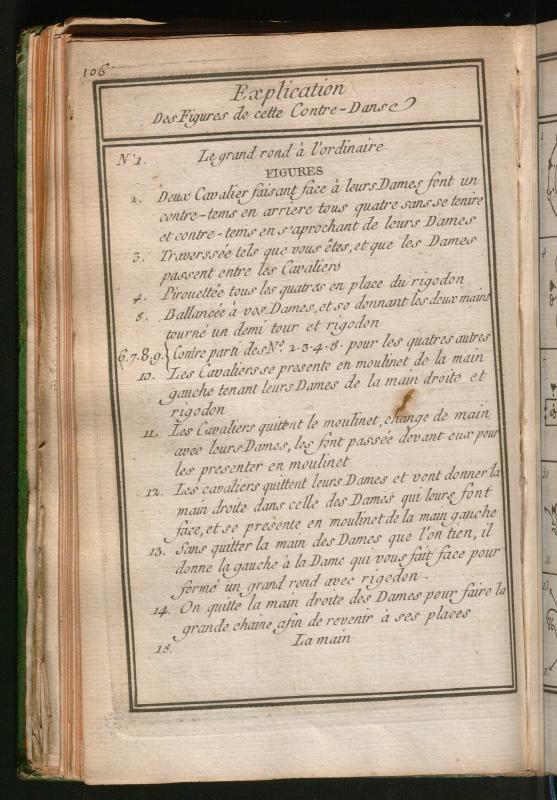 106
Explication
Des Figures de cette Contre-Danse
N.º 1. Le grand rond à l'ordinaire
FIGURES
2. Deux Cavalier faisant face à leurs Dames font un
contre-tems en arriere tous quatre sans se tenire
et contre-tems en s'aprochant de leurs Dames
3. Traverssée tels que vous êtes, et que les Dames
passent entre les Cavaliers
4. Pirouettée tous les quatres en place du rigodon
5. Ballancée à vos Dames, et se donnant les deux mains
tourné un demi tour et rigodon
6.7.8.9. Contre parti des Nº. 2.3.4.5. pour les quatres autres
10. Les Cavaliers se presente en moulinet de la main
gauche tenant leurs Dames de la main droite et
rigodon
11. Les Cavaliers quittent le moulinet, change de main
avec leurs Dames, les font passée devant eux pour
les presenter en moulinet
12. Les cavaliers quittent leurs Dames et vont donner la
main droite dans celle des Dames qui leurs font
face, et se presente en moulinet de la main gauche
13. Sans quitter la main des Dames que l'on tien, il
donne la gauche à la Dame qui vous fait face pour
formé un grand rond avec rigodon.
14. On quitte la main droite des Dames pour faire la
grande chaine afin de revenir à ses places
15. La main